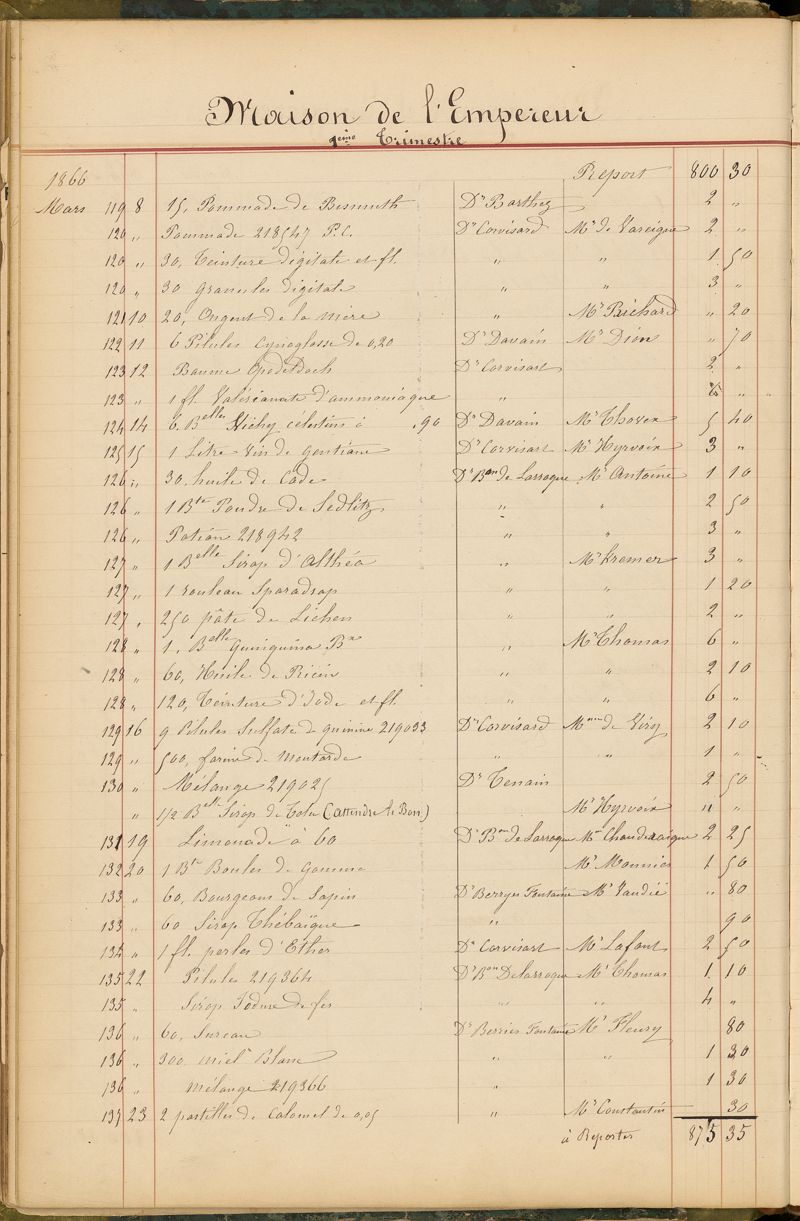 Maison de l'Empereur
1ere Trimestre
1866 Report 800 30
Mars 119 8 15, Pommade de Bismuth Dr Barthez 2 "
120 " Pommade 218547 P.C. Dr Corvisard Mr de Vareigne 2 "
120 " 30, Teinture digitale et fl. " " 1 50
120 " 30 granules digitale " " 3 "
121 10 20, Onguent de la mère Mr Prichard " 20
122 11 6 Pilules Cynoglosse de 0,20 Dr Davain Mr Dion " 70
123 12 Baume Opodeldoch Dr Corvisart 2 "
123 " 1 fl. Valérianate d'ammoniaque " "
124 14 6 Belles Vichy célestins à ,90 Dr Davain Mr Thoven 5 40
125 15 1 Litre vin de gentiane Dr Corvisart Mr Hyrvoix 3 "
126 " 30, huile de Cade Dr Bon de Larroque Mr Antoine 1 10
126 " 1 Bte Poudre de Sedlitz " " 2 50
126 " Potion 218942 " " 3 "
127 " 1 Belle Sirop d'Althéa " Mr Kremer 3 "
127 " 1 rouleau Sparadrap " " 1 20
127 " 250 pâte de Lichen " " 2 "
128 " 1, Belle Quinquina Bx " Mr Thomas 6 "
128 " 60, Huile de Ricin " " 2 10
128 " 120, Teinture d'Iode et fl. " " 6 "
129 16 9 Pilules Sulfate de quinine 219033 Dr Corvisard Mme de Viry 2 10
129 " 500, farine de Moutarde " " 1 "
130 " Mélange 219025 Dr Tenain 2 50
" 1/2 Belle Sirop de Tolu (attendre le Bon) Mr Hyrvoix " "
131 19 Limonade à 60 Dr Bon de Larroque Mr Chauderaigue 2 25
132 20 1 Bte Boules de gomme Mr Monnier 1 50
133 " 60, Bourgeons de Sapin Dr Berryer Fontaine Mr Vaudié " 80
133 " 60 Sirop Thébaïque " 90
134 " 1 fl. perles d'Ether Dr Corvisart Mr Lafont 2 50
135 22 Pilules 219364 Dr Bon Delarroque Mr Thomas 1 10
135 " Sirop Iodure de fer " " 4 "
136 " 60, Sureau Dr Berrier Fontaine Mr Fleury 80
136 " 300 miel Blanc " " 1 30
136 " mélange 219366 " 1 30
137 23 2 pastilles de Calomel de 0,05 " Mr Constantin 30
à Reporter 875 35